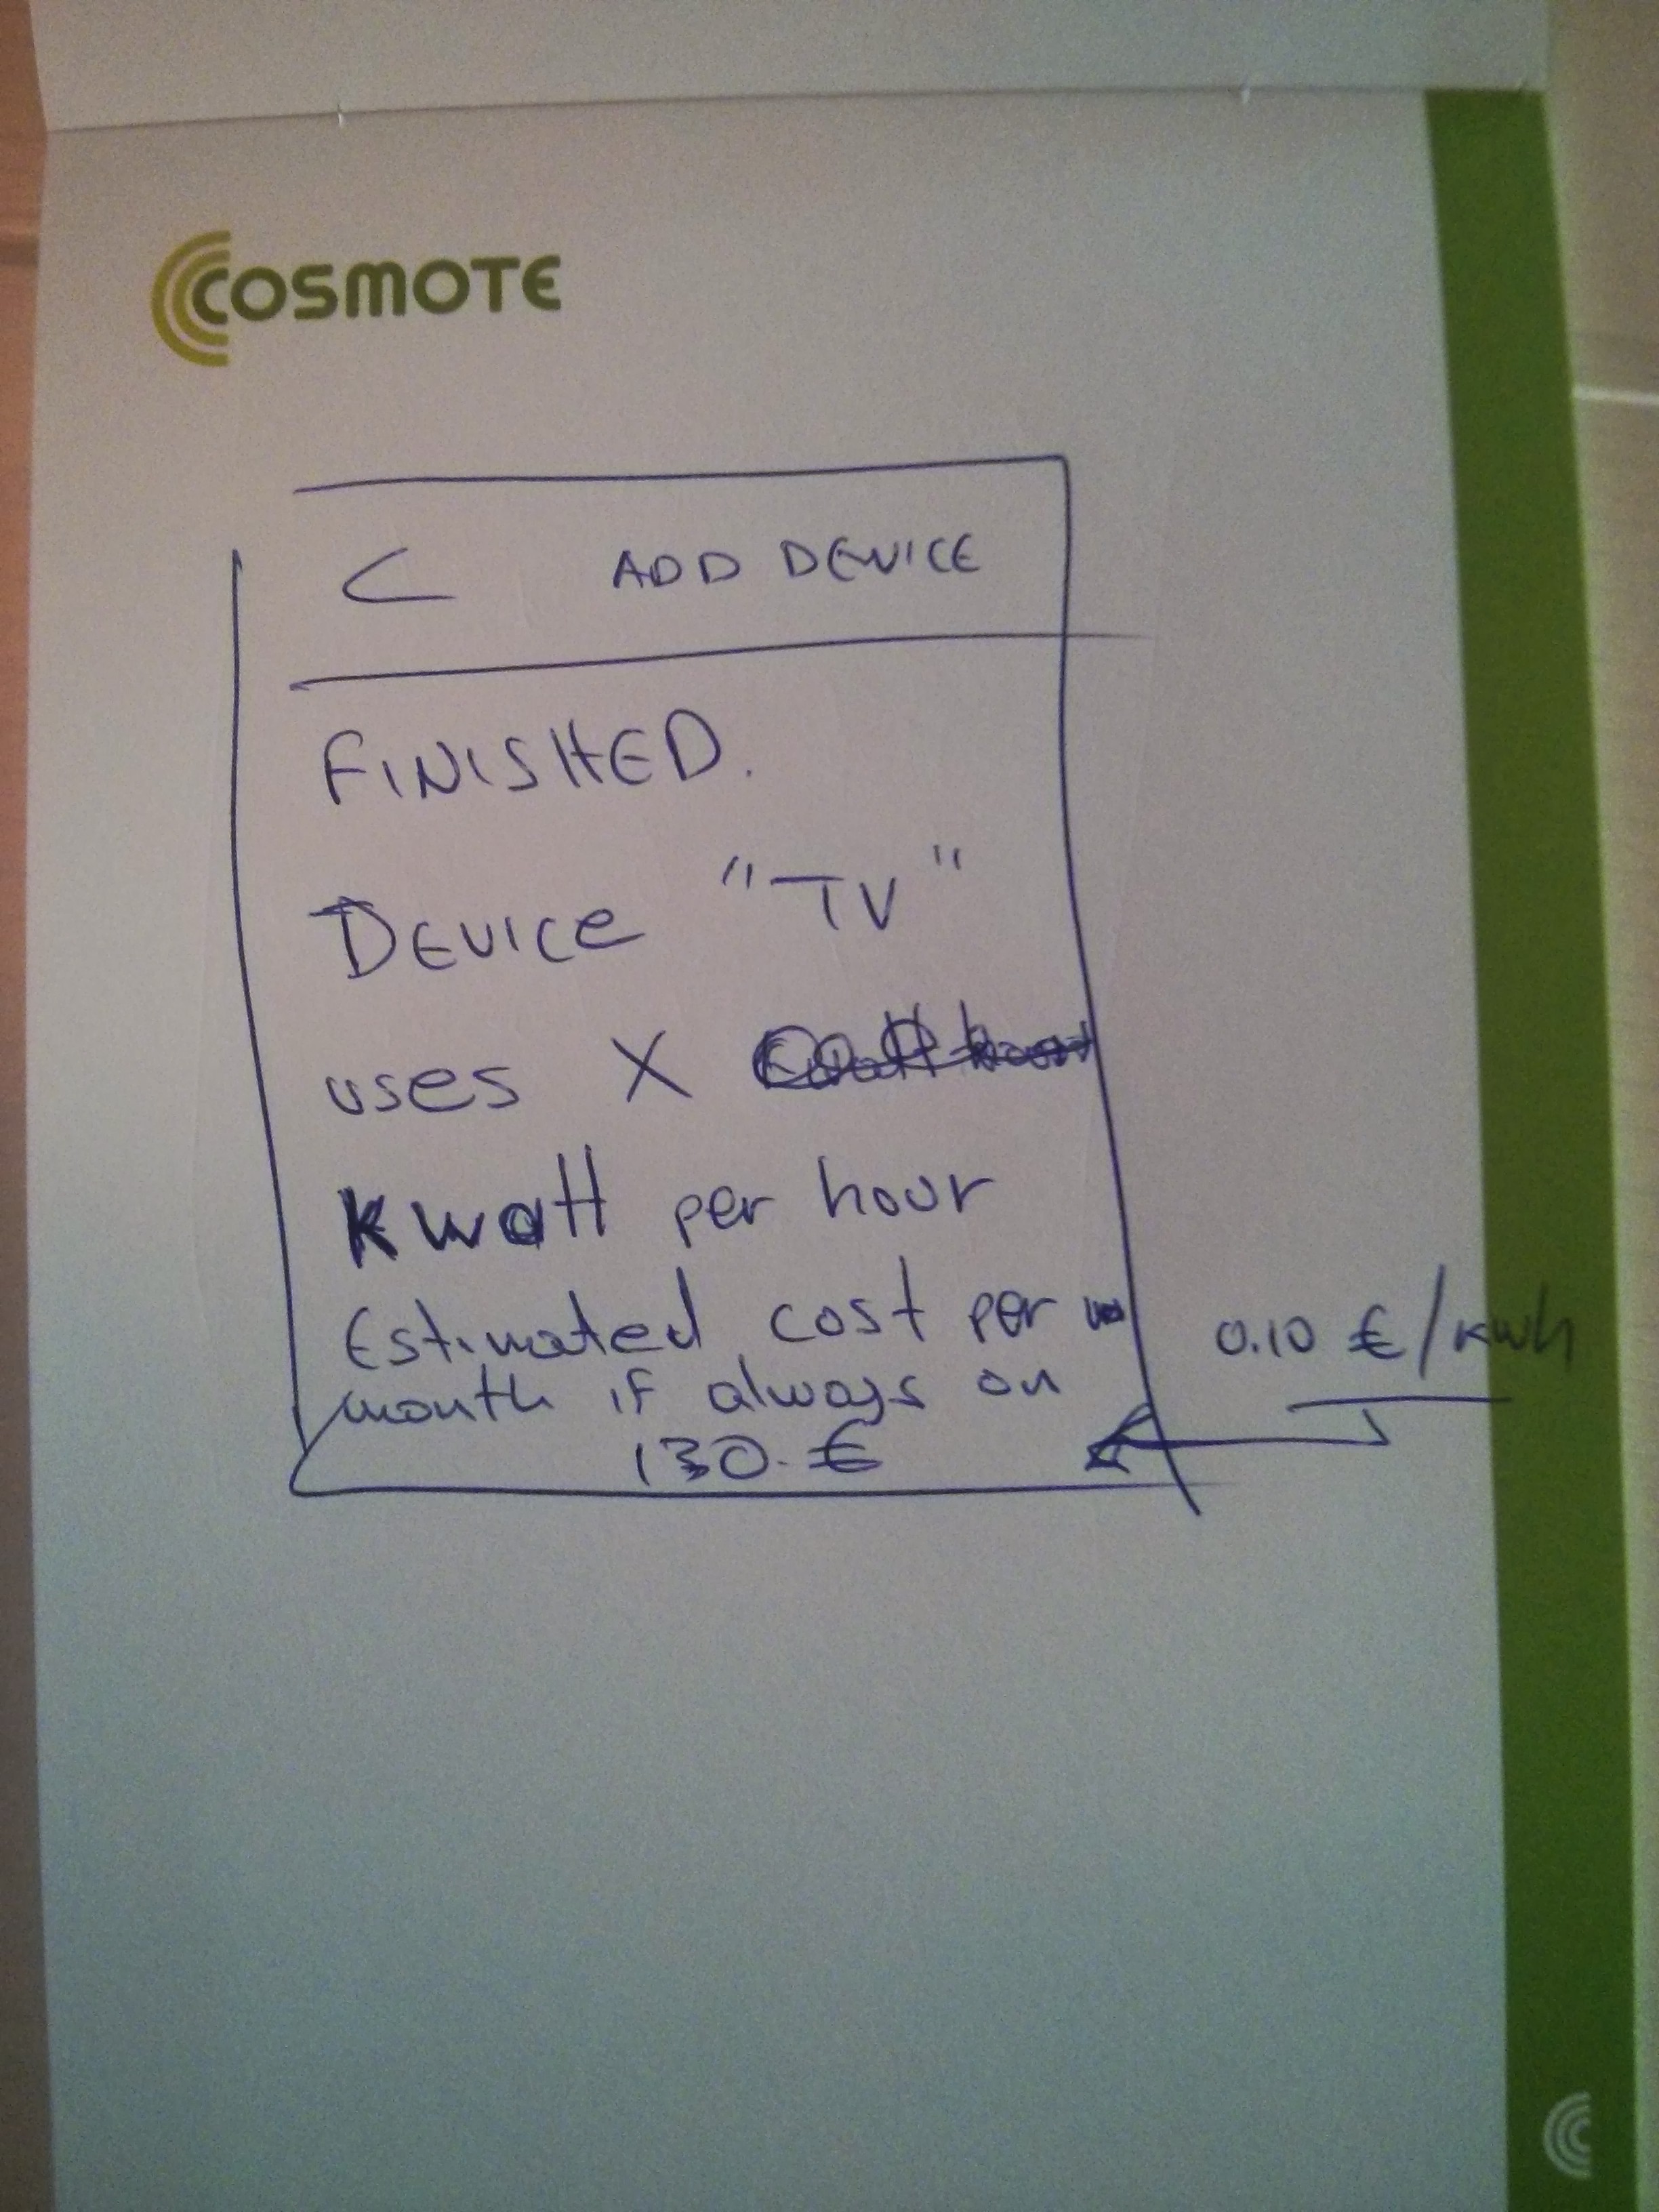 COSMOTE
< ADD DEVICE
FINISHED.
DEVICE "TV"
uses X
Kwatt per hour
Estimated cost per
month if always on
130.€
0.10 €/kwh